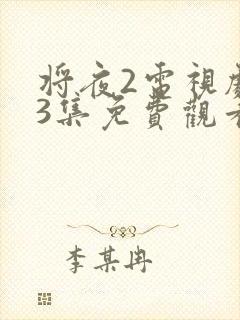 将夜2電視劇
3集免費觀看
李某冉